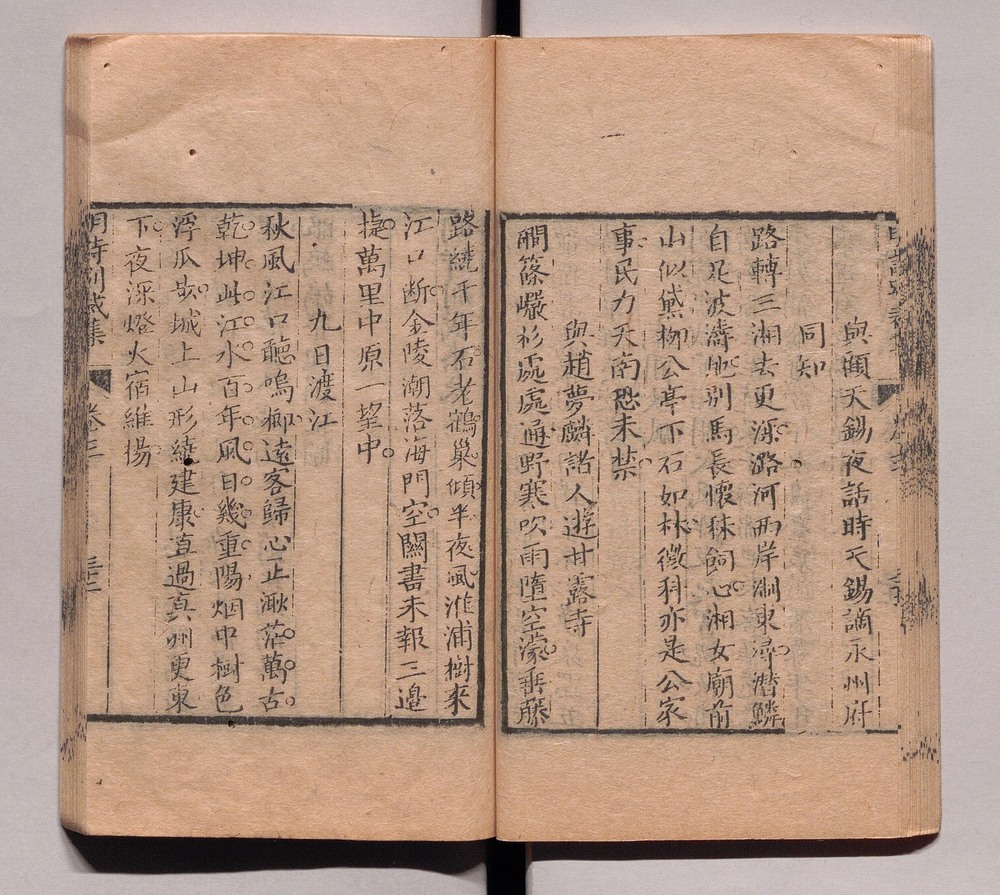 與顧天錫夜話時天錫謫永州府
同知
路轉三湘去更深潞河西岸涮東潯潛鱗
自足波濤地别馬長懷秣飼心湘女廟前
山似黛柳公亭下石如林徵科亦是公家
事民力天南恐未禁
與趙夢麟諸人遊甘露寺
磵篠巖杉處處通野寒吹雨墮空濛垂藤
路繞千年石老鶴巢傾半夜風淮浦樹來
江口斷金陵潮落海門空關書未報三邊
捷萬里中原一望中
九日渡江
秋風江口聽鳴榔遠客歸心正渺茫萬古
乾坤此江水百年風日幾重陽烟中樹色
浮瓜步城上山形繞建康直過真州更東
下夜深燈火宿維揚
明詩别裁集
卷三